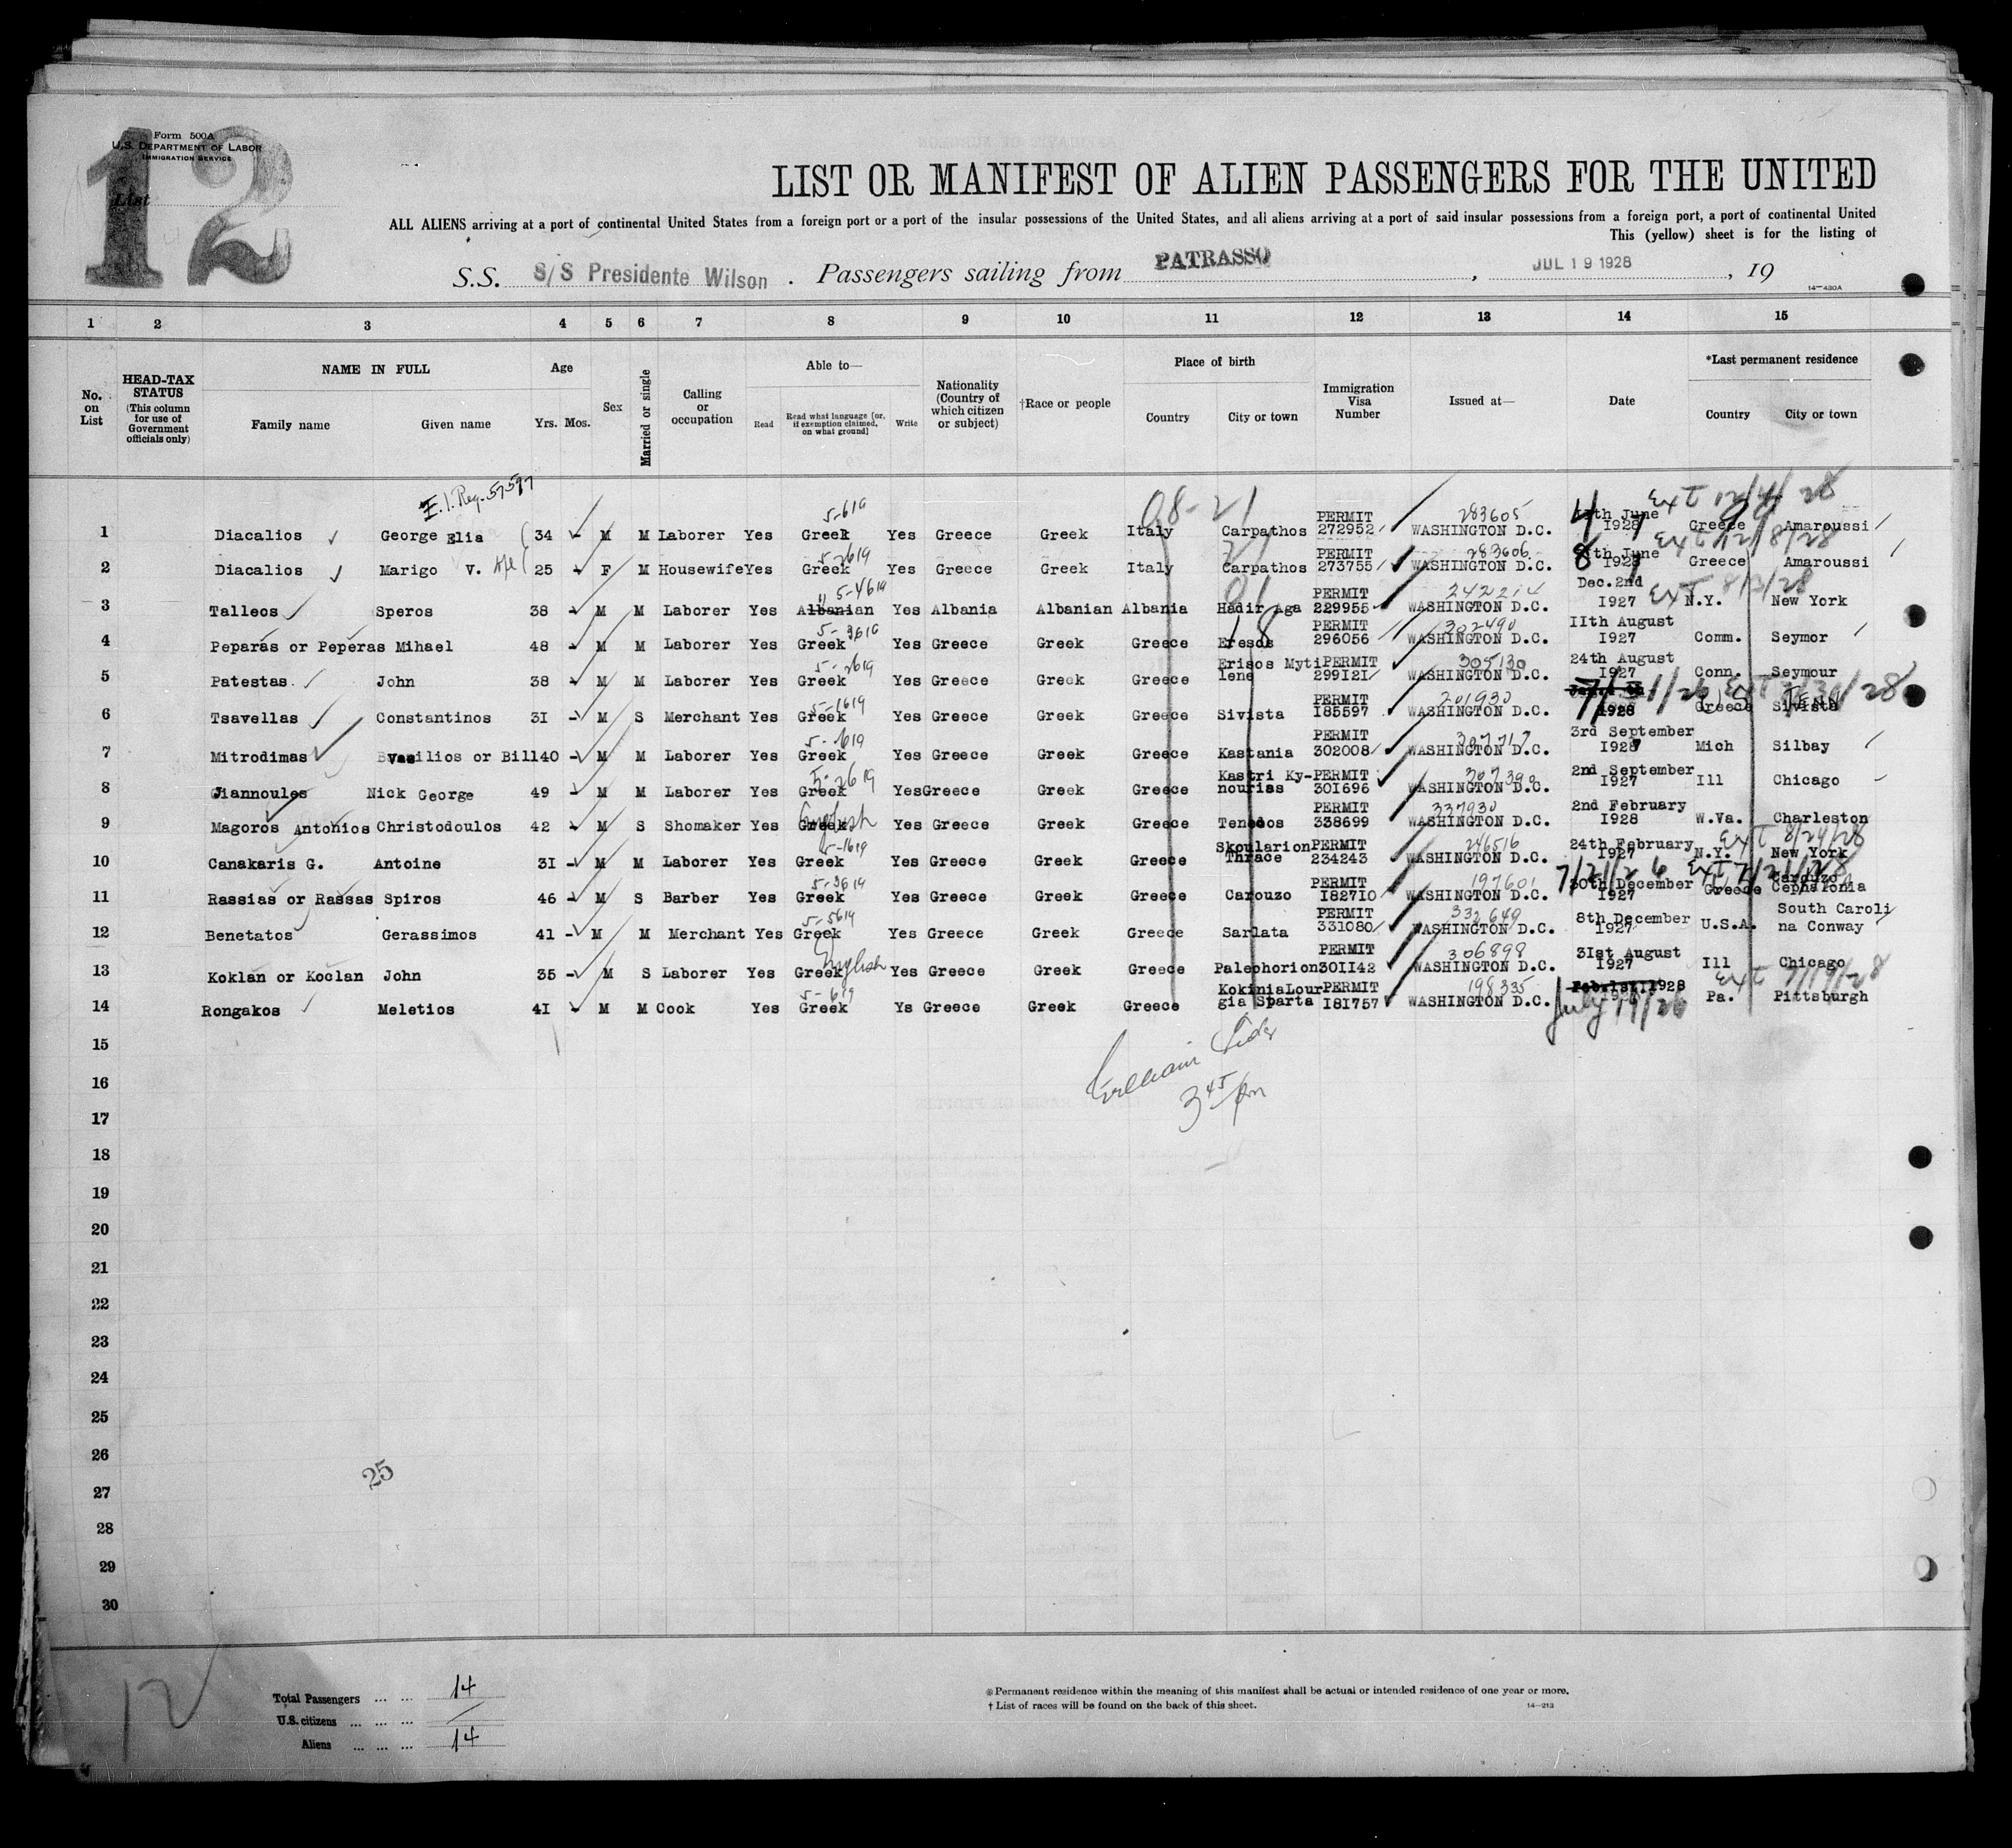 12
Form 500A
U.S. DEPARTMENT OF LABOR
IMMIGRATION SERVICE
List
LIST OR MANIFEST OF ALIEN PASSENGERS FOR THE UNITED
ALL ALIENS arriving at a port of continental United States from a foreign port or a port of the insular possessions of the United States, and all aliens arriving at a port of said insular possessions from a foreign port, a port of continental United
This (yellow) sheet is for the listing of
S.S. S/S Presidente Wilson. Passengers sailing from PATRASSO, JUL 19 1928, 19
14—430A
1 2 3 4 5 6 7 8 9 10 11 12 13 14 15
No. on List
HEAD-TAX STATUS (This column for use of Government officials only)
NAME IN FULL
Family name Given name
Age
Yrs. Mos.
Sex
Married or single
Calling or occupation
Able to—
Read Read what language [or, if exemption claimed, on what ground] Write
Nationality (Country of which citizen or subject)
†Race or people
Place of birth
Country City or town
Immigration Visa Number
Issued at—
Date
*Last permanent residence
Country City or town
E.I. Reg. 57597
08-21
5-619 PERMIT 283605 11th June
1 Diacalios George Elia 34 M M Laborer Yes Greek Yes Greece Greek Italy Carpathos 272952 WASHINGTON D.C. 1928 Greece Amaroussi
5-2619 21 PERMIT 283606 June
2 Diacalios Marigo V. 25 F M Housewife Yes Greek Yes Greece Greek Italy Carpathos 273755 WASHINGTON D.C. 1928 Greece Amaroussi
5-4619 01 PERMIT 242214 Dec. 2nd Ext 8/3/28
3 Talleos Speros 38 M M Laborer Yes Albanian Yes Albania Albanian Albania Hadir Aga 229955 WASHINGTON D.C. I927 N.Y. New York
5-3619 18 PERMIT 302490 IIth August
4 Peparas or Peperas Mihael 48 M M Laborer Yes Greek Yes Greece Greek Greece Eresos 296056 WASHINGTON D.C. I927 Comm. Seymor
5-2619 Erisos Myti PERMIT 305130 24th August
5 Patestas John 38 M M Laborer Yes Greek Yes Greece Greek Greece lene 299I2I WASHINGTON D.C. I927 Conn. Seymour
5-1619 PERMIT 201930
6 Tsavellas Constantinos 3I M S Merchant Yes Greek Yes Greece Greek Greece Sivista I85597 WASHINGTON D.C. 1928 Greece Sivista
5-619 PERMIT 307717 3rd September
7 Mitrodimas Vasilios or Bill 40 M M Laborer Yes Greek Yes Greece Greek Greece Kastania 302008 WASHINGTON D.C. I927 Mich Silbay
5-2619 Kastri Ky- PERMIT 307398 2nd September
8 Jiannoules Nick George 49 M M Laborer Yes Greek Yes Greece Greek Greece nourias 30I696 WASHINGTON D.C. I927 Ill Chicago
English PERMIT 337930 2nd February
9 Magoros Antonios Christodoulos 42 M S Shomaker Yes Greek Yes Greece Greek Greece Tenedos 338699 WASHINGTON D.C. I928 W.Va. Charleston
5-1619 Skoularion PERMIT 246516 24th February Ext 8/24/28
10 Canakaris G. Antoine 3I M M Laborer Yes Greek Yes Greece Greek Greece Thrace 234243 WASHINGTON D.C. I927 N.Y. New York
5-3619 PERMIT 197601 7/21/26 30th December Ext 7/21/28 Carouzo
11 Rassias or Rassas Spiros 46 M S Barber Yes Greek Yes Greece Greek Greece Carouzo I827I0 WASHINGTON D.C. I927 Greece Cephalonia
5-5619 PERMIT 332649 8th December South Caroli
12 Benetatos Gerassimos 41 M M Merchant Yes Greek Yes Greece Greek Greece Sarlata 331080 WASHINGTON D.C. I927 U.S.A. na Conway
English PERMIT 306898 3Ist August
13 Koklan or Koclan John 35 M S Laborer Yes Greek Yes Greece Greek Greece Palephorion 30II42 WASHINGTON D.C. I927 Ill Chicago
5-619 KokiniaLour- PERMIT 198335 Feb. 1st 1928 Ext 7/19/28
14 Rongakos Meletios 4I M M Cook Yes Greek Ys Greece Greek Greece gia Sparta I8I757 WASHINGTON D.C. July 19/26 Pa. Pittsburgh
15
3 45 pm
16
17
18
19
20
21
22
23
24
25
26
25
27
28
29
30
12
Total Passengers ... ... 14
U.S. citizens ... ... ... /
Aliens ... ... ... 14
*Permanent residence within the meaning of this manifest shall be actual or intended residence of one year or more.
† List of races will be found on the back of this sheet.
14—213